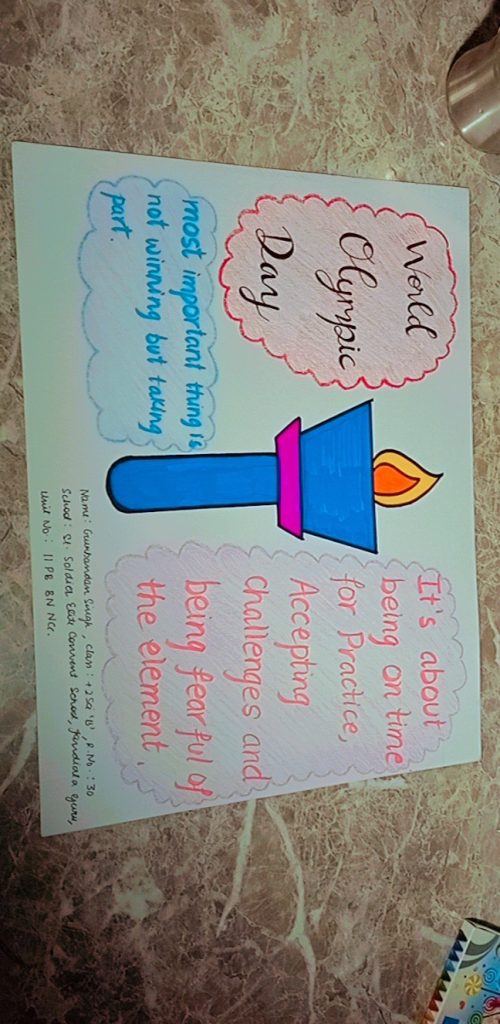 World
Olympic
Day
most important thing is
not winning but taking
part.
It's about
being on time
for Practice,
Accepting
challenges and
being fearful of
the element.
Name: Gunbandan Singh, Class: +2 Sci 'B', R.No.: 30
School: St. Soldier Elite Convent School, Jandiala Guru,
Unit No: 11 PB BN NCC.